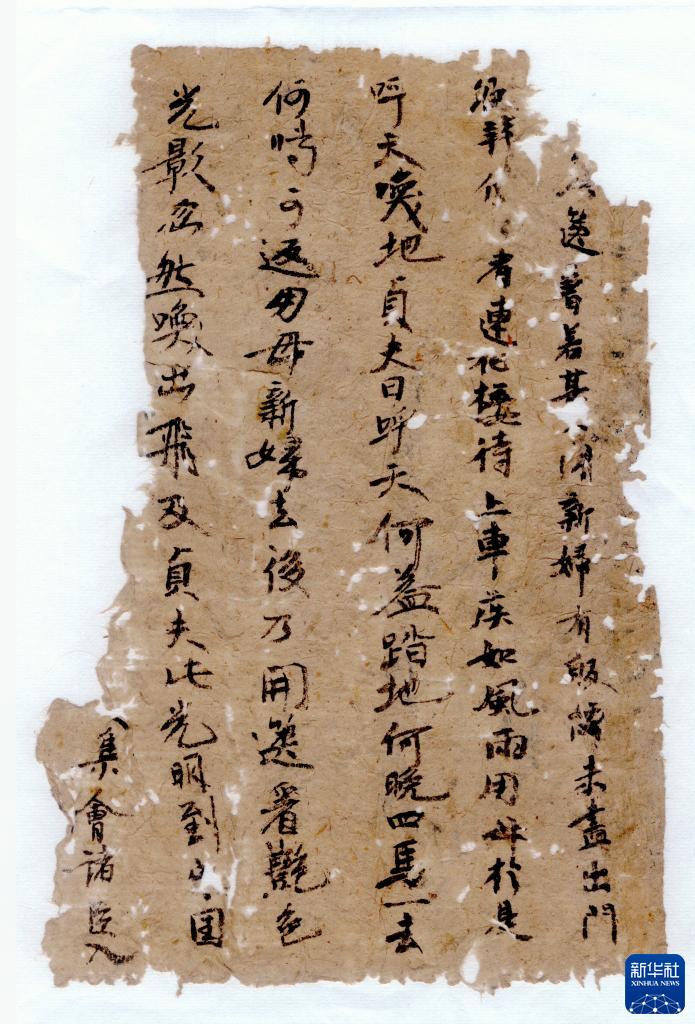 著若其開新婦有未盡出門
拜有連花接待上車疾如風雨用母於是
呼天喚地貞夫曰呼天何益踏地何晚四馬一去
何時可返用母新婦去後乃開看艷色
光影忽然喚出飛及貞夫此光明到国
集會諸臣入
新华社
XINHUA NEWS